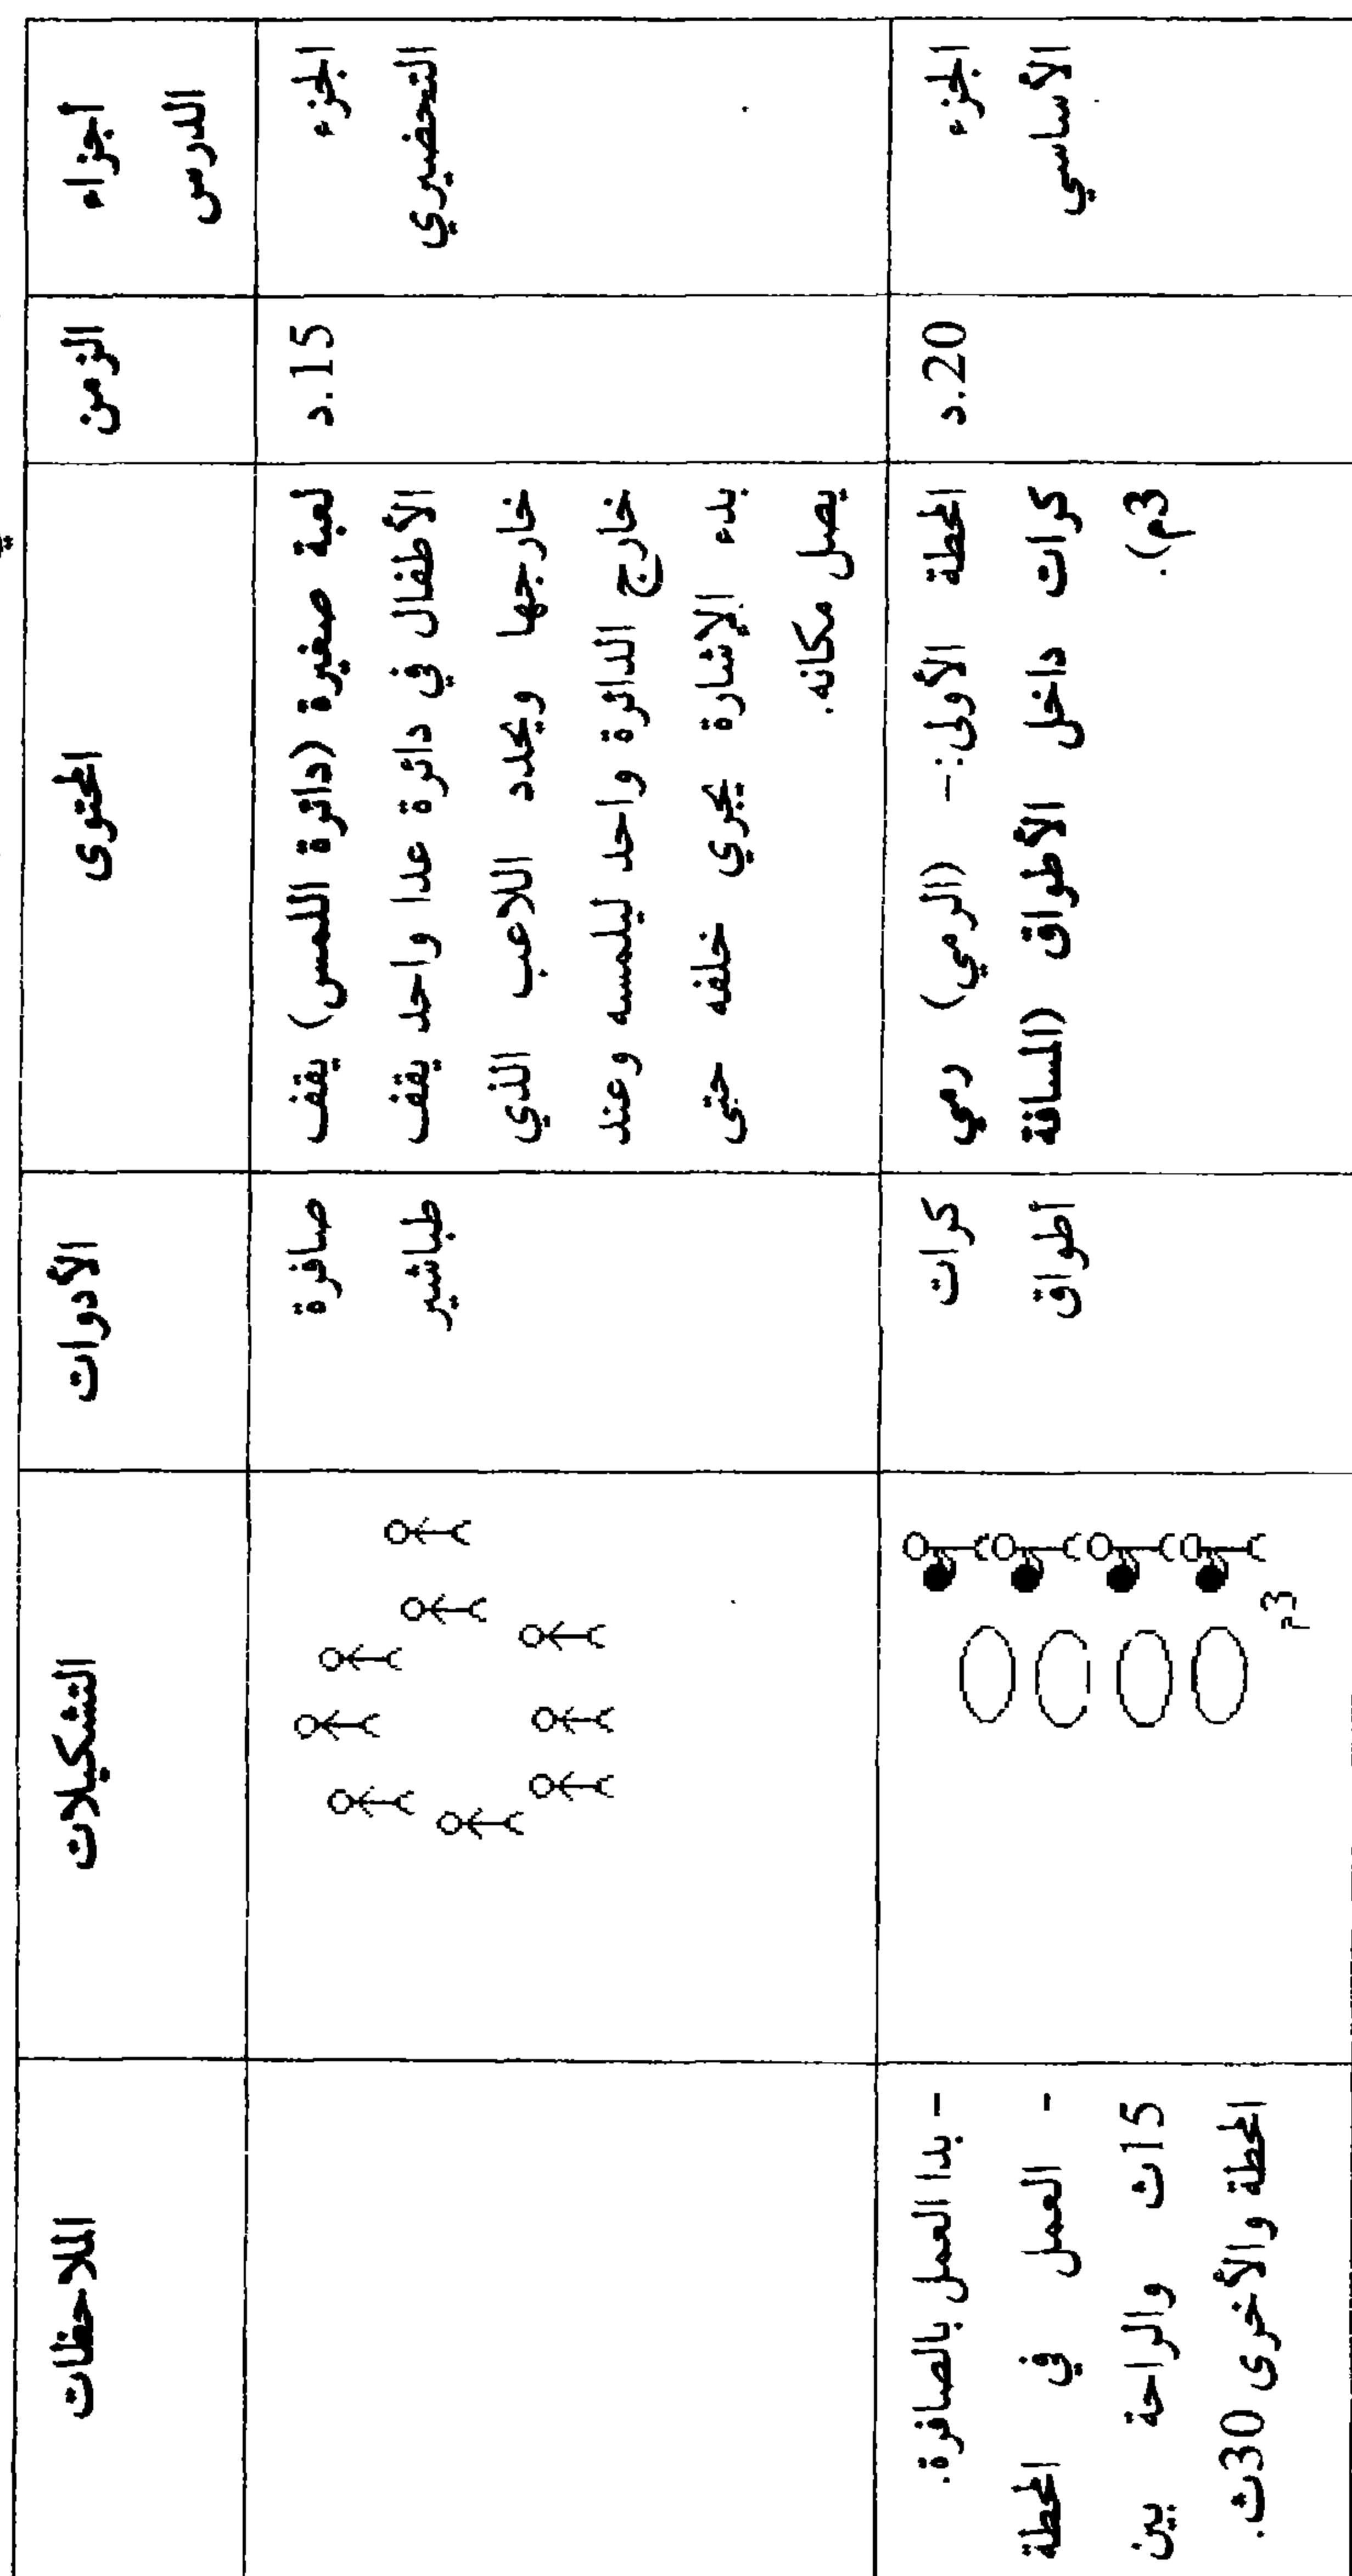 أجزاء
الدرس
الزمن
المحتوى
الأدوات
التشكيلات
الملاحظات
الجزء
التحضيري
15.د
لعبة صغيرة (دائرة اللمس) يقف
الأطفال في دائرة عدا واحد يقف
خارجها ويحدد اللاعب الذي
خارج الدائرة واحد ليلمسه وعند
بدء الإشارة يجري خلفه حتى
يصل مكانه.
صافرة
طباشير
الجزء
الأساسي
20.د
المحطة الأولى:– (الرمي) رمي
كرات داخل الأطواق (المسافة
3م).
كرات
أطواق
3م
– بدا العمل بالصافرة.
- العمل في المحطة
15ث والراحة بين
المحطة والأخرى 30ث.